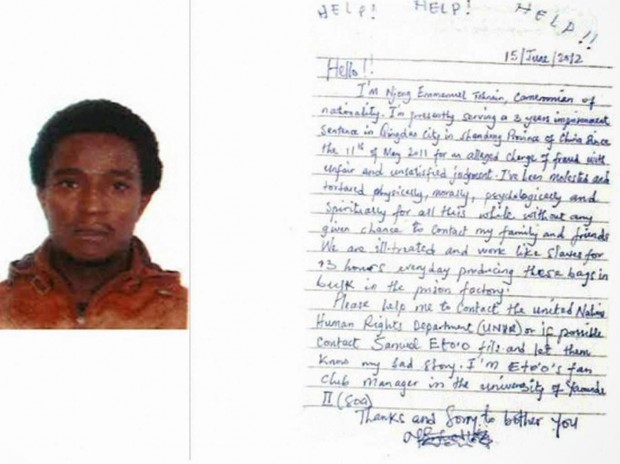 HELP! HELP! HELP!!
15/June/2012
Hello!!
I'm Njong Emmanuel Tohnain, Cameroonian of
nationality. I'm presently serving a 3 years imprisonment
Sentence in Qingdao City in Shandong Province of China Since
the 11th of May 2011 for an alleged charge of fraud with
unfair and unsatisfied judgment. I've been molested and
tortured physically, morally, psychologically and
Spiritually for all this while without any
given chance to contact my family and friends
We are ill-treated and work like slaves for
13 hours everyday producing these bags in
bulk in the prison factory.
Please help me to contact the united Nations
Human Rights Department (UNHR) or if possible
contact Samuel Eto'o fils and let them
know my sad story. I'm Eto'o's fan
Club Manager in the university of Yaounde
II (Soa)
Thanks and Sorry to bother you